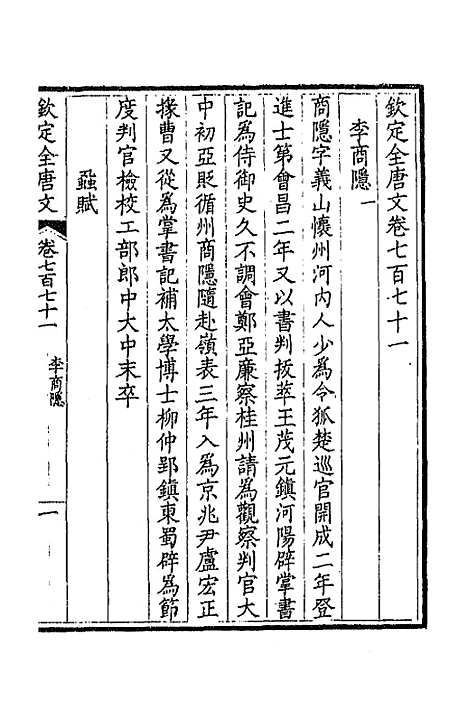 欽定全唐文卷七百七十一
李商隱一
商隱字義山懷州河內人少為令狐楚巡官開成二年登
進士第會昌二年又以書判拔萃王茂元鎮河陽辟掌書
記為侍御史久不調會鄭亞廉察桂州請為觀察判官大
中初亞貶循州商隱隨赴嶺表三年入為京兆尹盧宏正
掾曹又從為掌書記補太學博士柳仲郢鎮東蜀辟為節
度判官檢校工部郎中大中末卒
蝨賦
欽定全唐文 卷七百七十一 李商隱 一